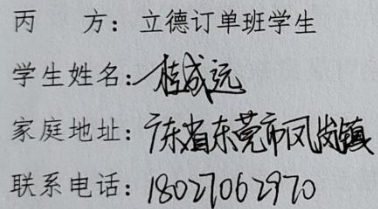 丙 方：立德订单班学生
学生姓名：桂成远
家庭地址：广东省东莞市凤岗镇
联系电话：18027062970